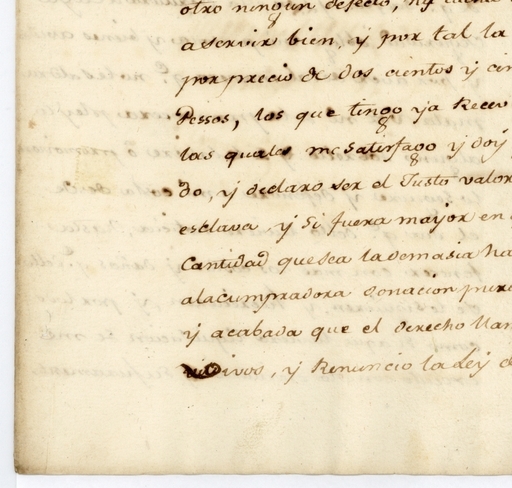 otro ningun defecto, ny
aservir bien, y por tal la
por precio de dos cientos y cin
Pessos, los que tingo ya Recev
las quales me satisfago y doy
do, y declaro ser el Justo valor
esclava, y si fuera mayor en
Cantidad que sea la demasia ha
alacumpradora donacion pura
y acabada que el derecho llam
vivos, y Renuncio la Ley d